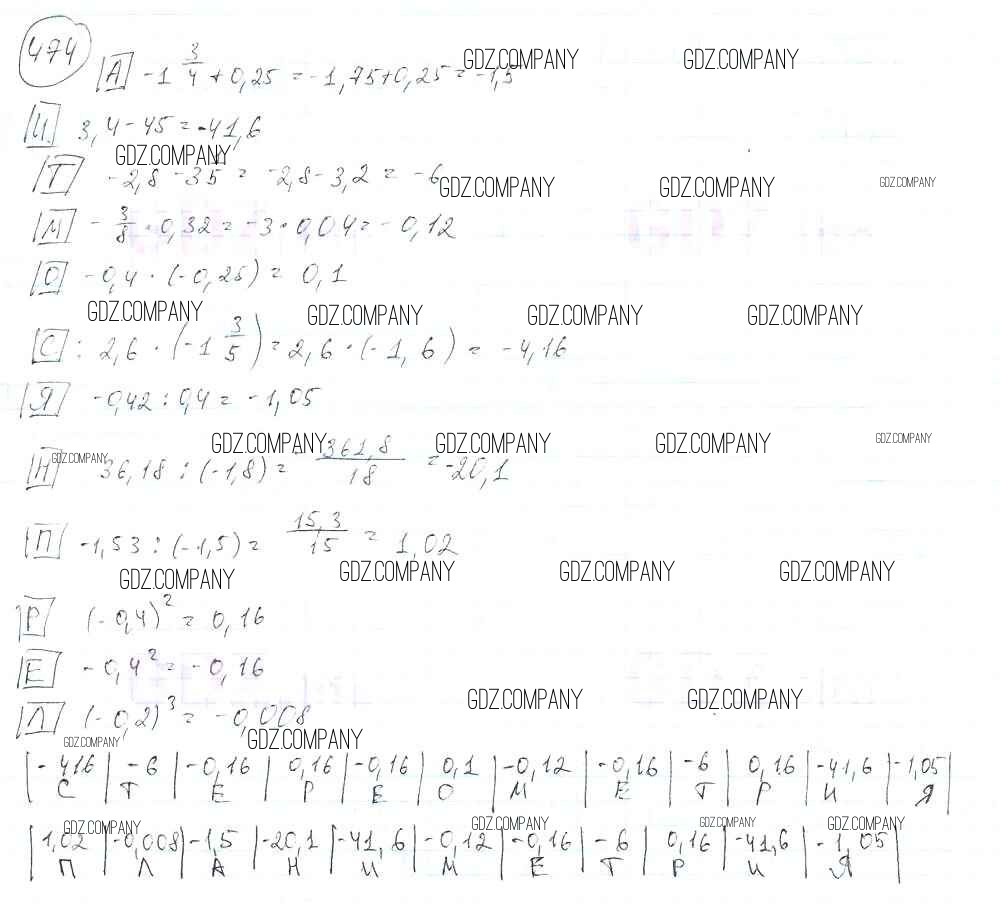 474
А -1 3/4 + 0,25 = -1,75+0,25 = -1,5
GDZ.COMPANY GDZ.COMPANY
И 3,4-45 = -41,6
GDZ.COMPANY
Т -2,8 - 35 = -2,8-3,2 = -6
GDZ.COMPANY GDZ.COMPANY GDZ.COMPANY
М - 3/8 · 0,32 = -3 · 0,04 = -0,12
О -0,4 · (-0,25) = 0,1
GDZ.COMPANY GDZ.COMPANY GDZ.COMPANY GDZ.COMPANY
С : 2,6 · (-1 3/5) = 2,6 · (-1,6) = -4,16
Я -0,42 : 0,4 = -1,05
GDZ.COMPANY GDZ.COMPANY GDZ.COMPANY GDZ.COMPANY
GDZ.COMPANY
Н 36,18 : (-1,8) = - 361,8/18 = -20,1
П -1,53 : (-1,5) = 15,3/15 = 1,02
GDZ.COMPANY GDZ.COMPANY GDZ.COMPANY GDZ.COMPANY
Р (-0,4)² = 0,16
Е -0,4² = -0,16
GDZ.COMPANY GDZ.COMPANY
Л (-0,2)³ = -0,008
GDZ.COMPANY GDZ.COMPANY
|-416|-6|-0,16|0,16|-0,16|0,1|-0,12|-0,16|-6|0,16|-41,6|-1,05|
С Т Е Р Е О М Е Т Р И Я
GDZ.COMPANY GDZ.COMPANY GDZ.COMPANY GDZ.COMPANY
|1,02|-0,008|-1,5|-20,1|-41,6|-0,12|-0,16|-6|0,16|-41,6|-1,05|
П Л А Н И М Е Т Р И Я